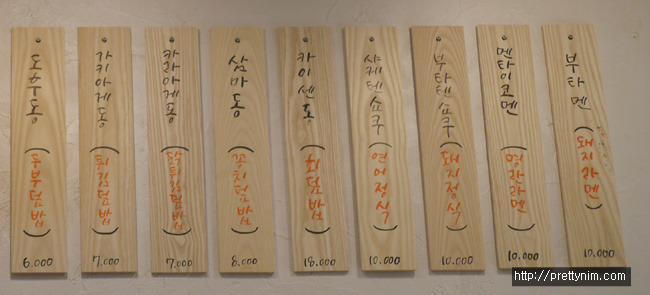 도후동
(두부덮밥)
6.000
가키아게동
(튀김덮밥)
7.000
카라아게동
(닭튀김덮밥)
7.000
삼바동
(꽁치덮밥)
8.000
카이센동
(회덮밥)
18.000
샤케텐쇼쿠
(연어정식)
10.000
부타텐쇼쿠
(돼지정식)
10.000
멘타이코멘
(명란라멘)
10.000
부타멘
(돼지라멘)
10.000
http://prettynim.com